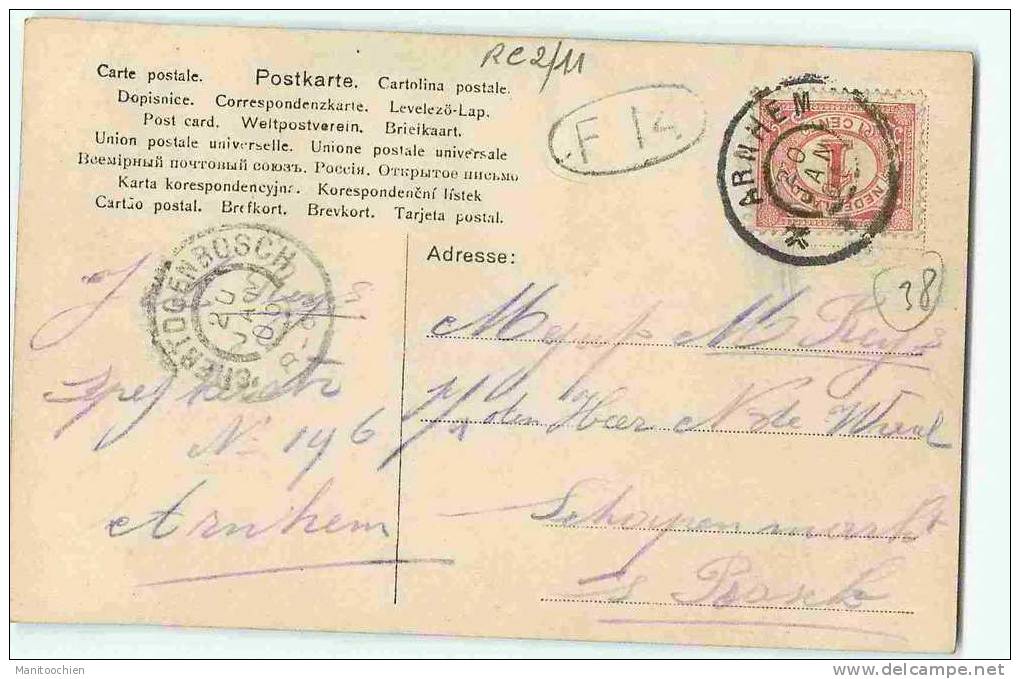 RC2/11
Carte postale. Postkarte. Cartolina postale.
Dopisnice. Correspondenzkarte. Levelező-Lap.
Post card. Weltpostverein. Briefkaart.
Union postale universelle. Unione postale universale
Всемірный почтовый союзъ. Россія. Открытое письмо
Karta korespondencyjna. Korespondenční lístek
Cartão postal. Brefkort. Brevkort. Tarjeta postal.
F 14
ARNHEM
20
JAN
1 CENT
1
38
'SHERTOGENBOSCH
20
JAN
Adresse:
J
No 196
Arnhem
Mej
M
p/a den Heer N de Waal
Schapenmarkt
's Bosch
Manitoochien
www.delcampe.net